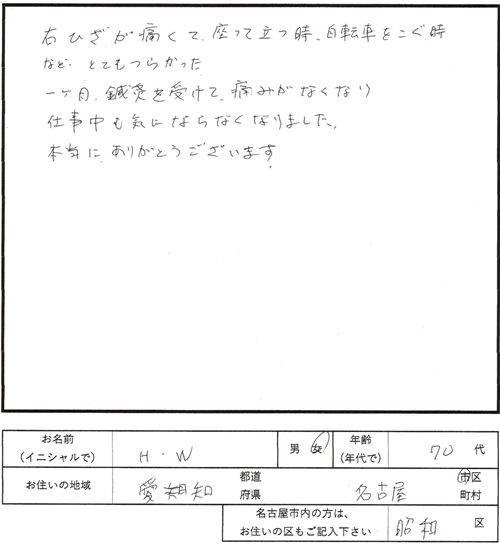 右ひざが痛くて、座って立つ時、自転車をこぐ時
など、とてもつらかった
一ヶ月、鍼灸を受けて、痛みがなくなり
仕事中も気にならなくなりました。
本当に、ありがとうございます。
お名前
(イニシャルで)
H・W
男 女
年齢
(年代で)
70 代
お住いの地域
愛知
都道
府県
名古屋
市区
町村
名古屋市内の方は、
お住いの区もご記入下さい
昭和 区